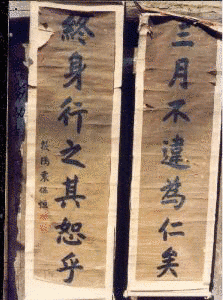 三月不違為仁矣
終身行之其恕乎